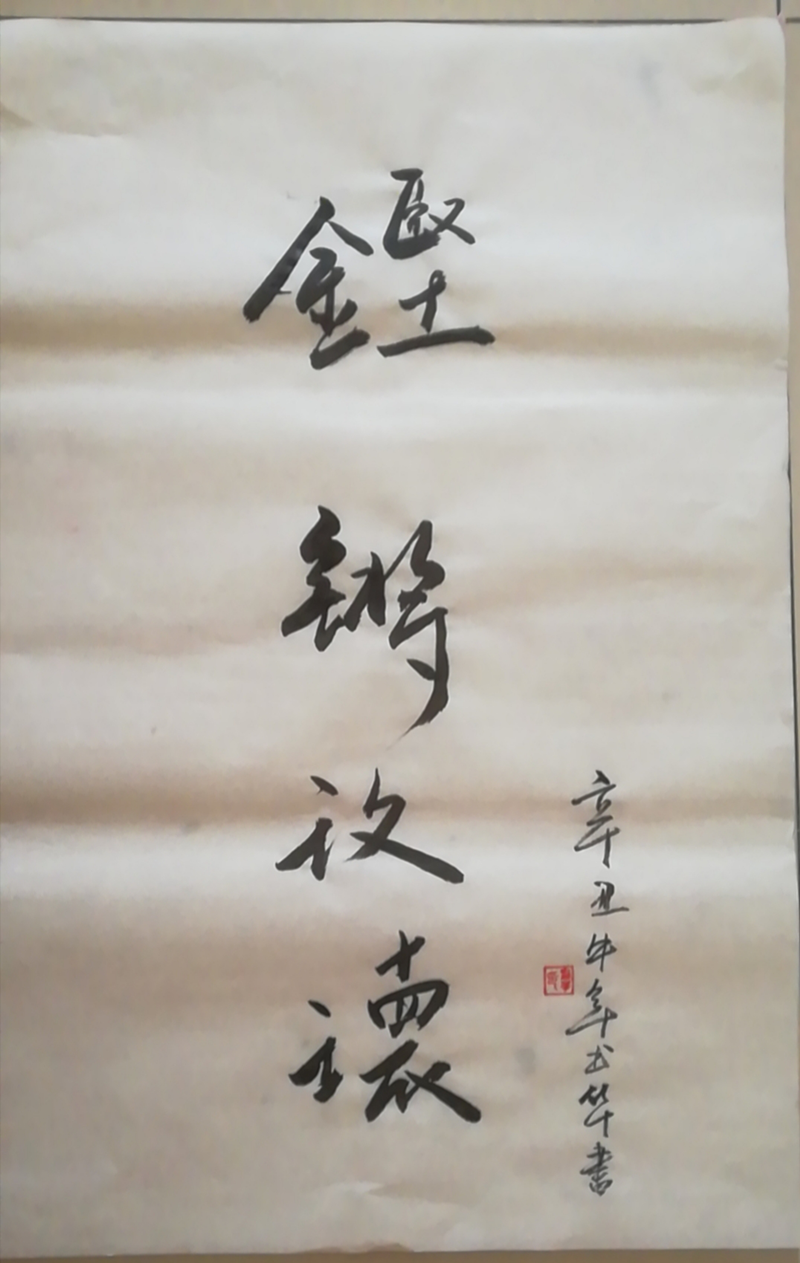 鏗鏘玫瓌
辛丑牛年华書